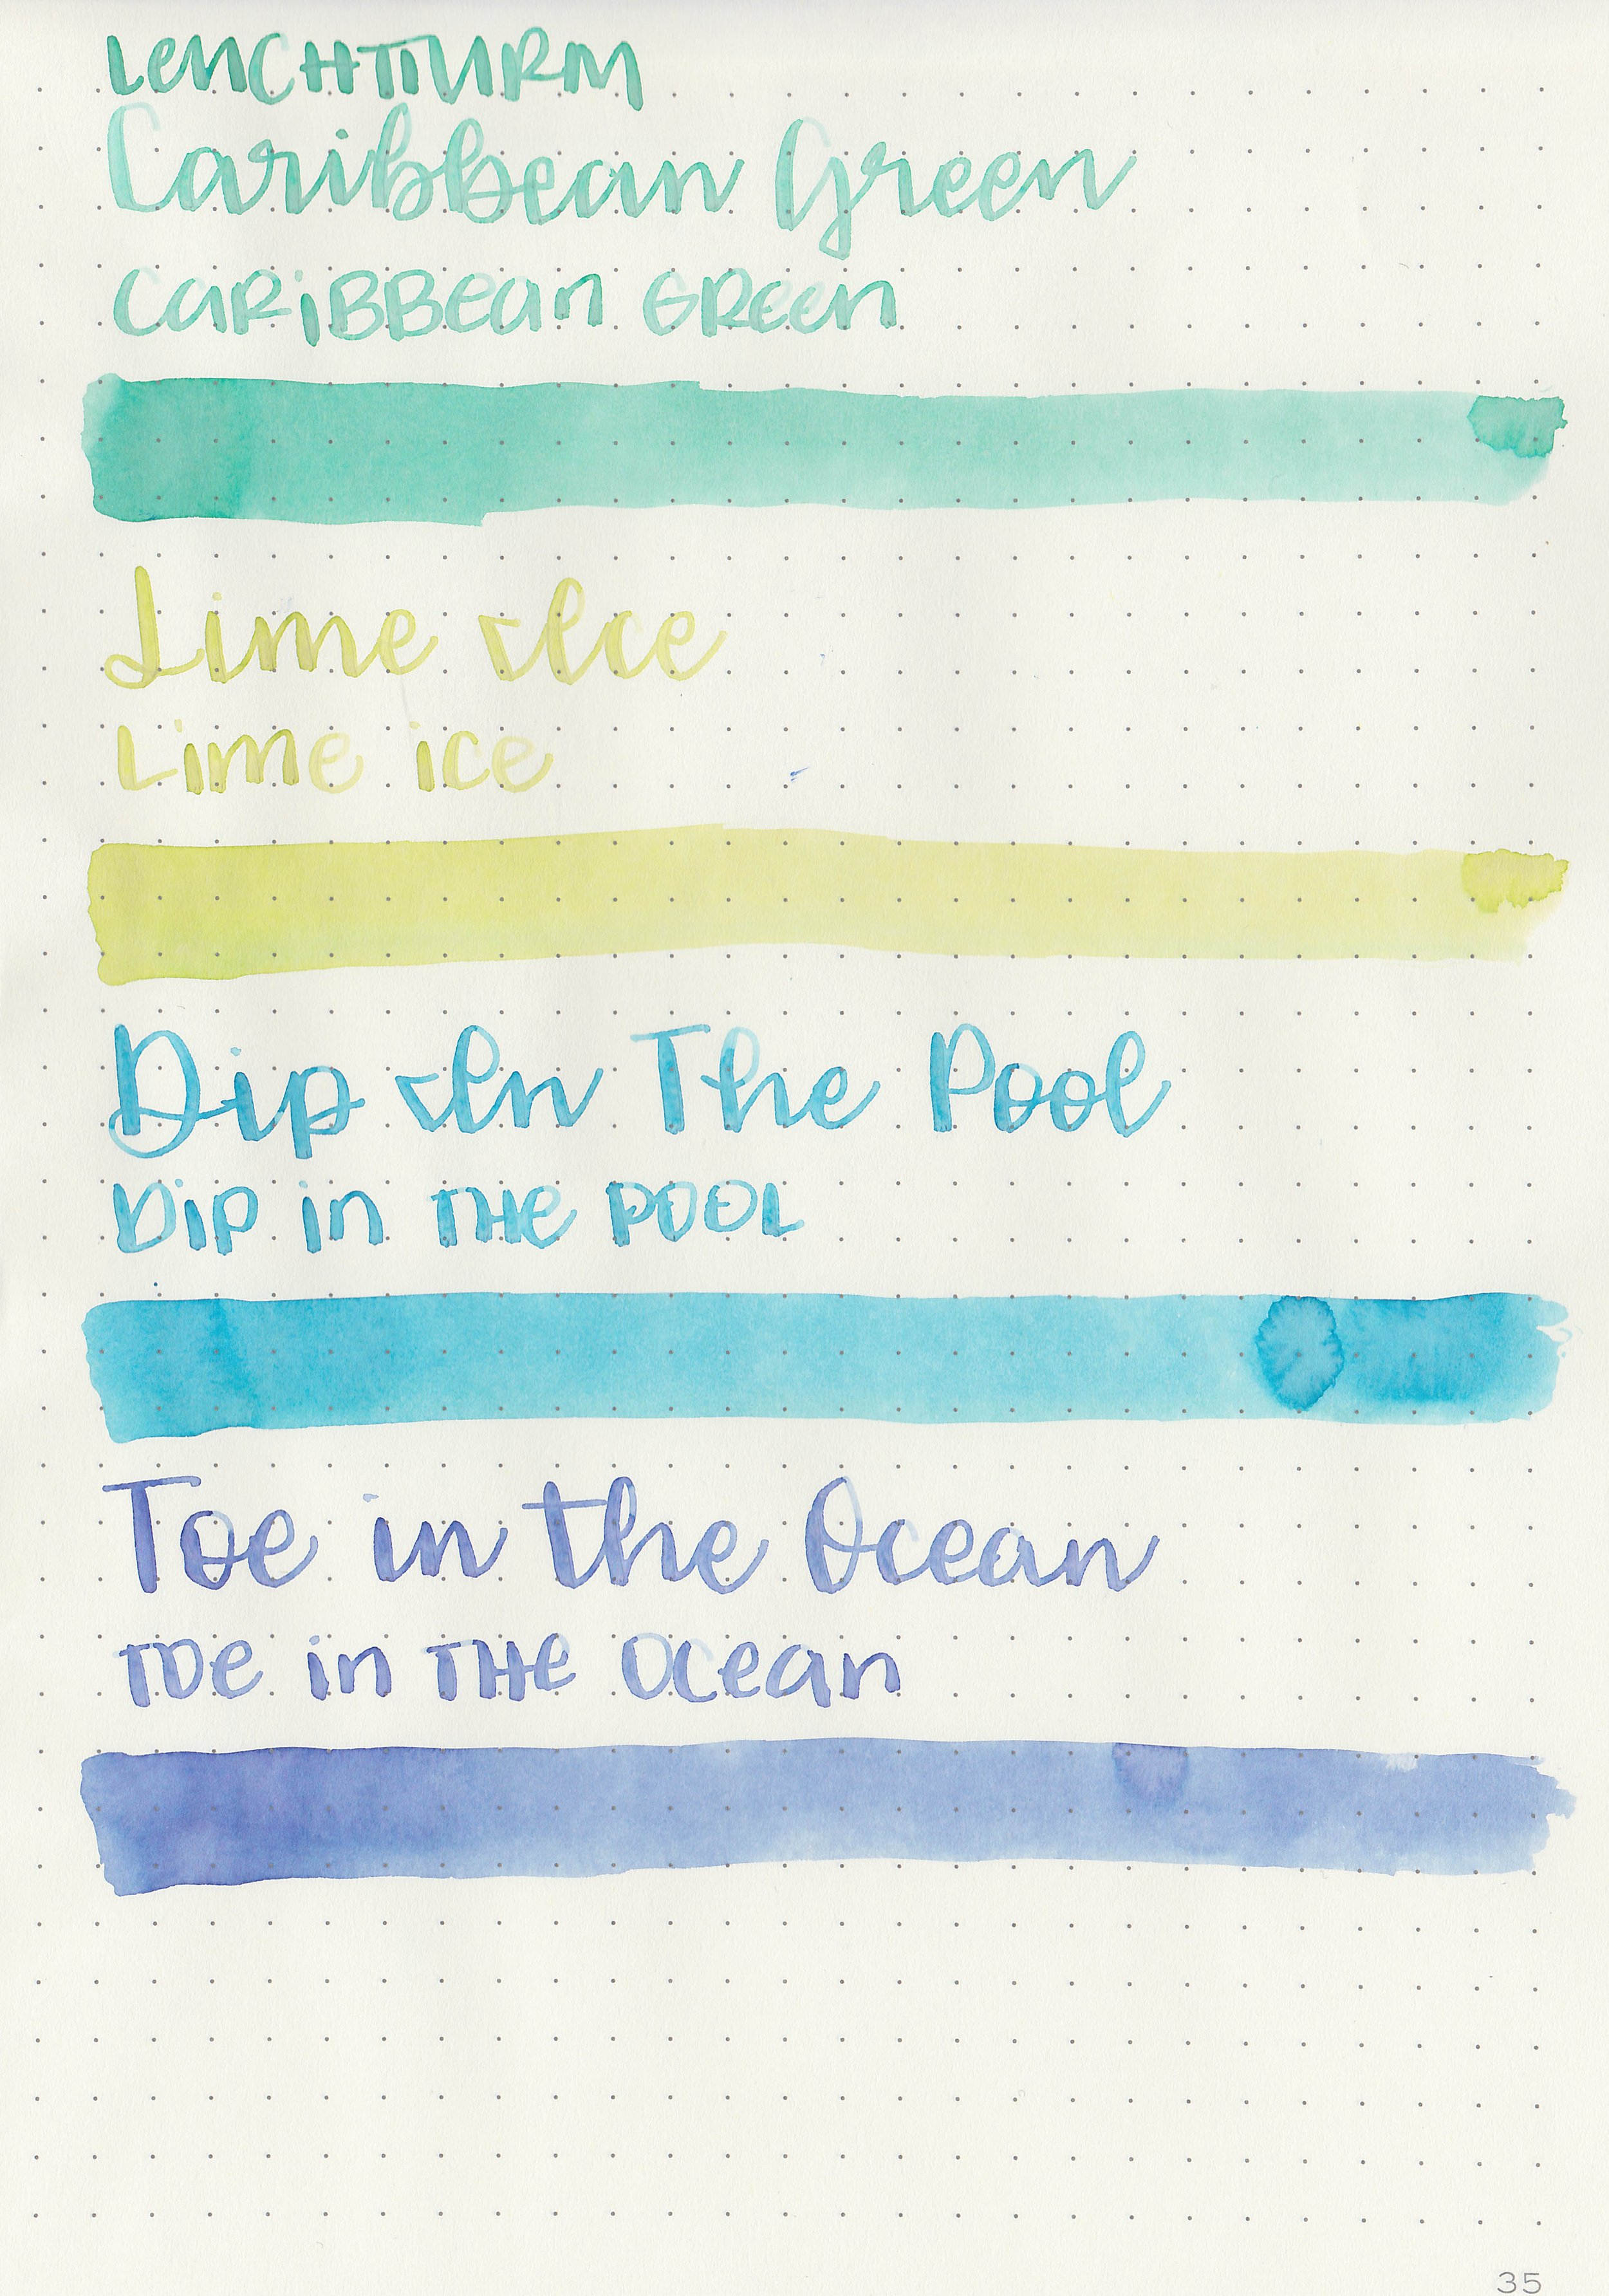 LEUCHTTURM
Caribbean Green
CARIBBEAN GREEN
Lime Ice
Lime ice
Dip In The Pool
Dip in THE POOL
Toe in the Ocean
TOE in THE Ocean
35